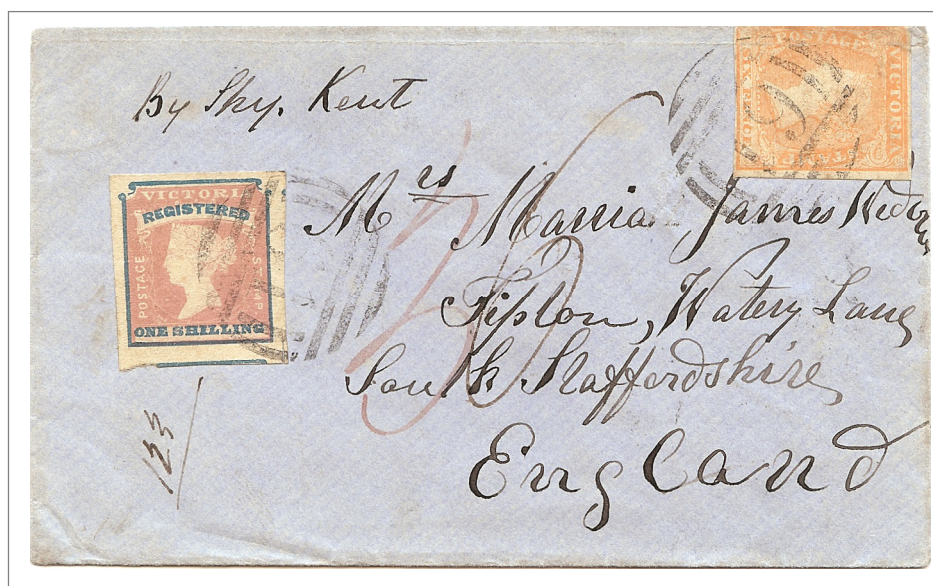 By Shp. Kent
POSTAGE
VICTORIA
STAMP
SIX PENCE
6
VICTORIA
REGISTERED
POSTAGE
STAMP
ONE SHILLING
Mrs Maria James
Tipton, Watery Lane
South Staffordshire
England
123